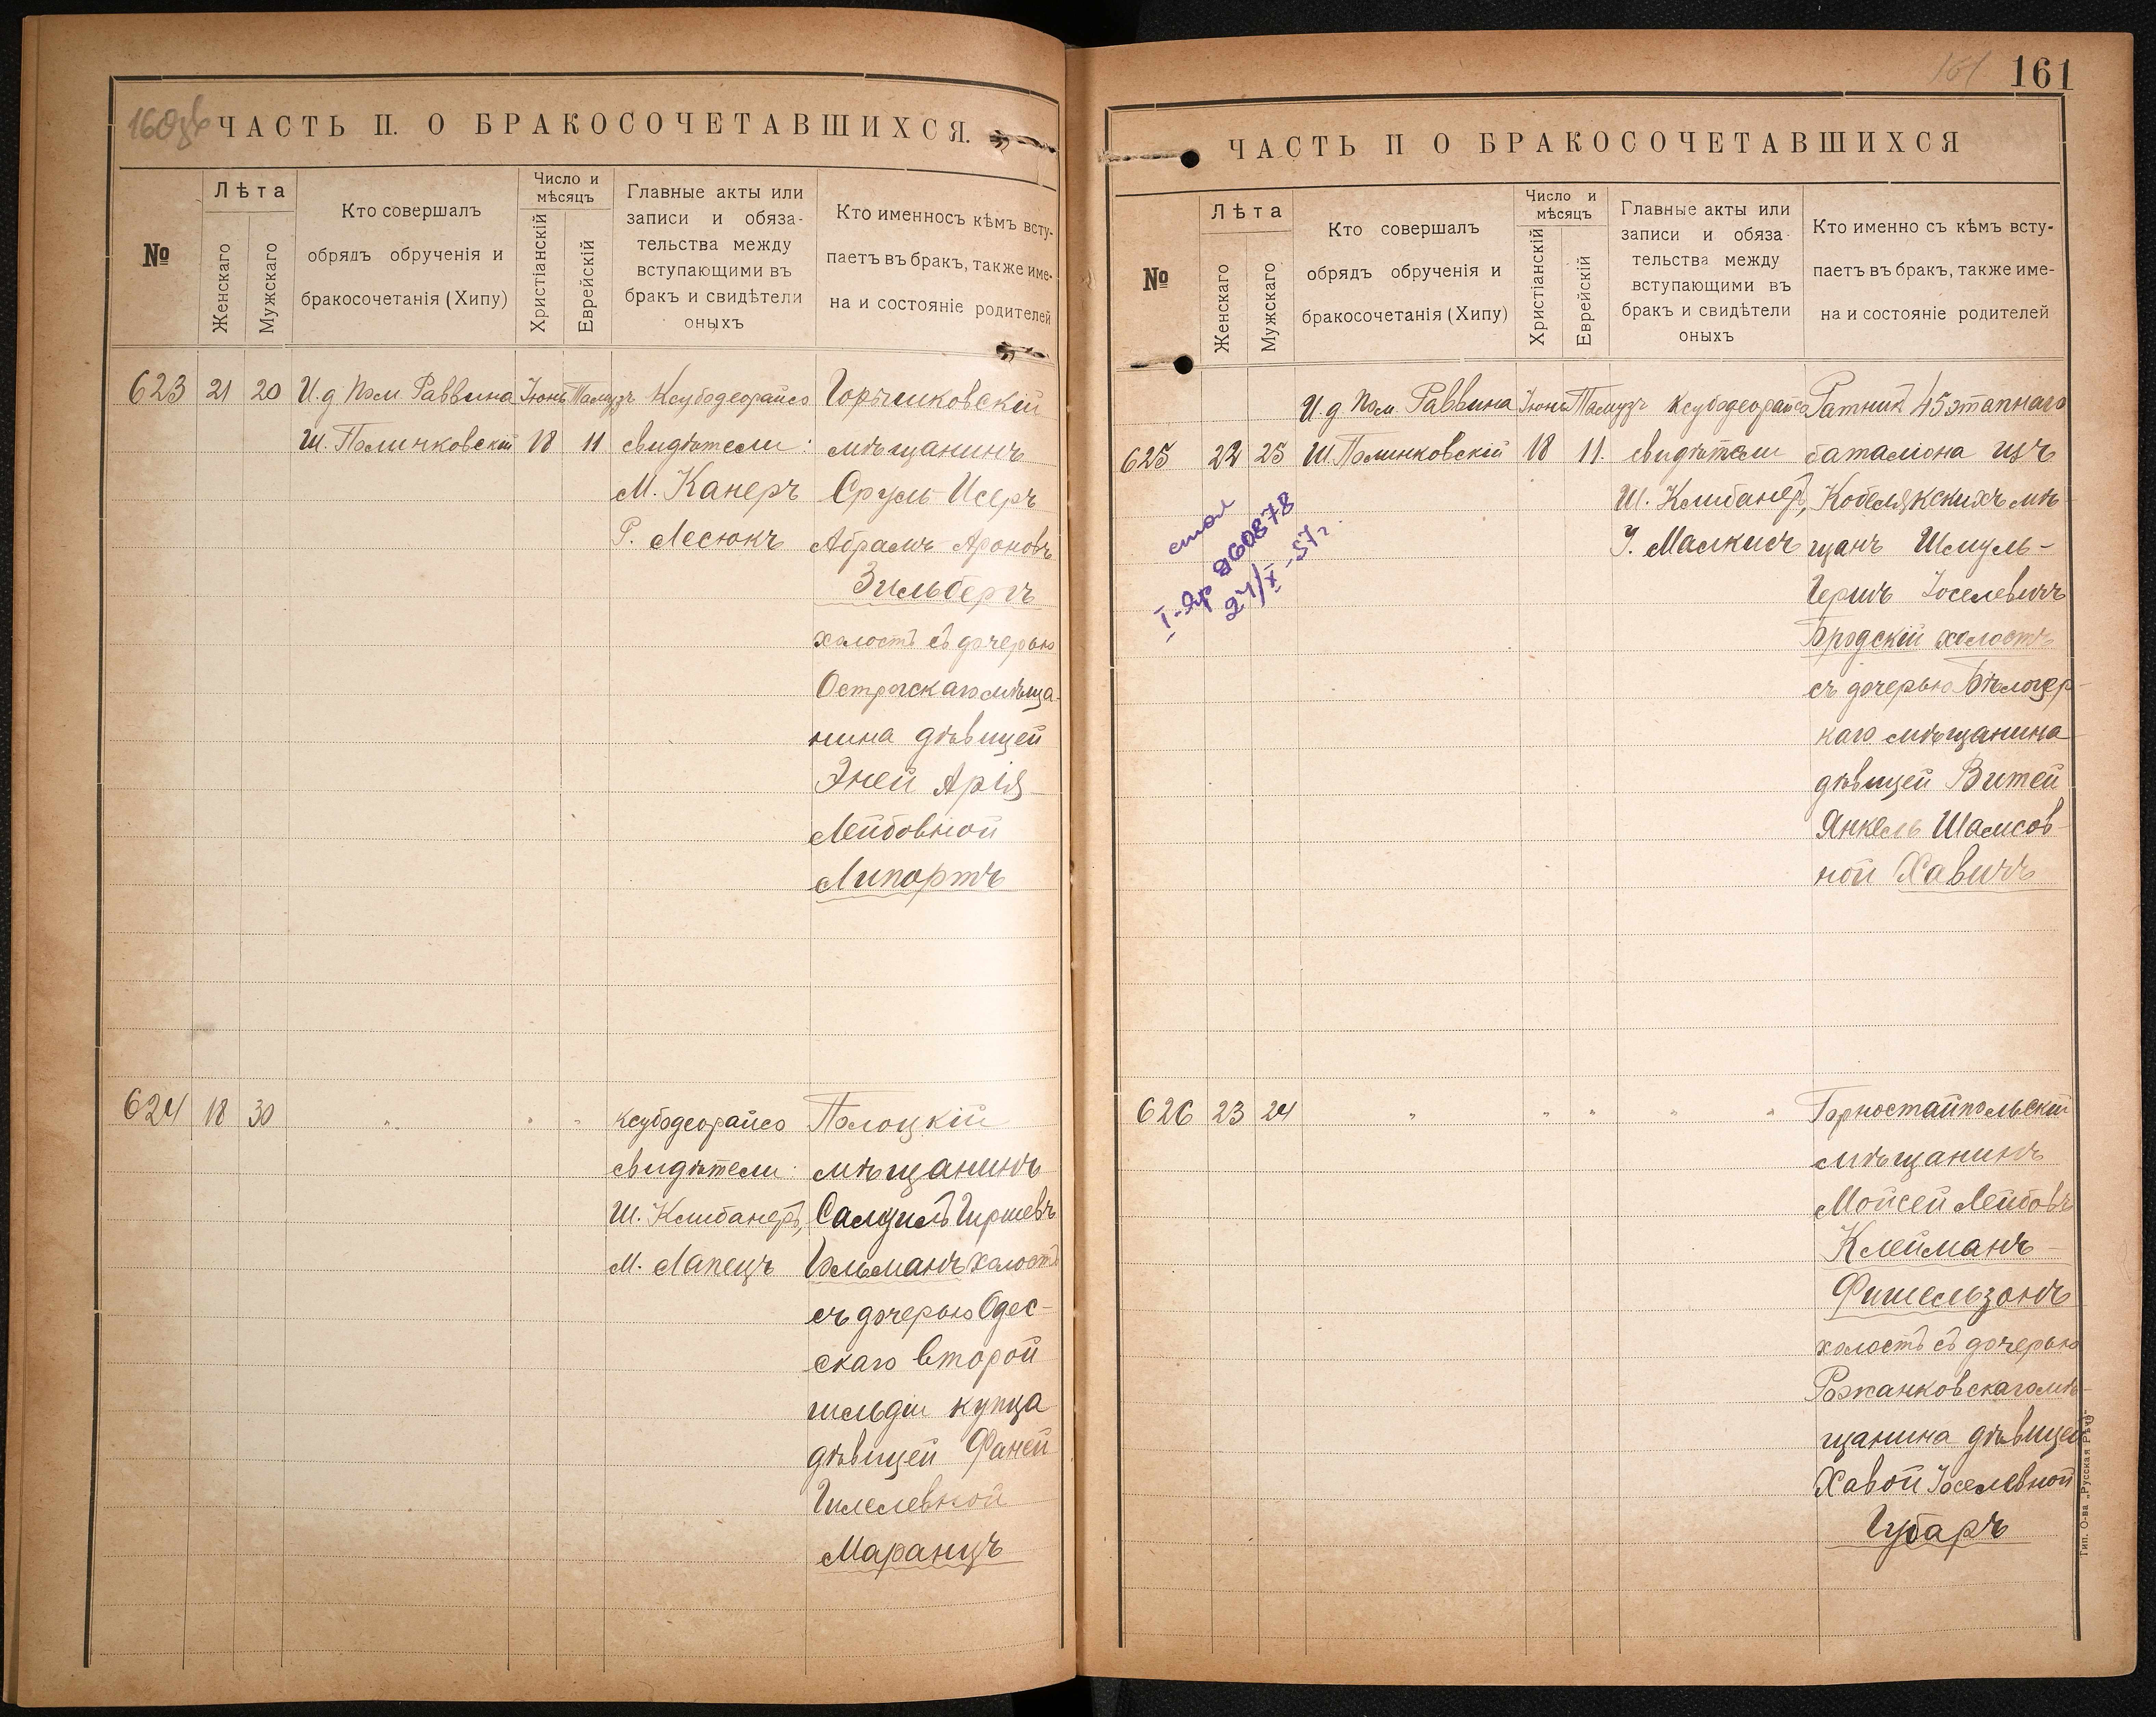 160об
ЧАСТЬ II. О БРАКОСОЧЕТАВШИХСЯ.
№
Лѣта
Женскаго
Мужскаго
Кто совершалъ
обрядъ обрученія и
бракосочетанія (Хипу)
Число и
мѣсяцъ
Христіанскій
Еврейскій
Главные акты или
записи и обяза-
тельства между
вступающими въ
бракъ и свидѣтели
оныхъ
Кто именно съ кѣмъ всту-
паетъ въ бракъ, также име-
на и состояніе родителей
623 21 20 И.д Пом Раввина Іюнь Тамузъ Ксубодеорайсо
Ш. Полинковскій 18 11 свидѣтели:
М. Канеръ
Р. Лесюкъ
мѣщанинъ
Сруль-Исеръ
Абрамъ-Ароновъ
Зильбергъ
холостъ съ дочерью
Острогскаго мѣща-
нина дѣвицей
Эней Арія-
Лейбовной
Липортъ
624 18 30 " " " Ксубодеорайсо
свидѣтели:
Ш. Клибанеръ,
М. Лапецъ
Полоцкій
мѣщанинъ
Гиршевъ
Гельманъ холостъ
съ дочерью Одес-
скаго второй
гильдіи купца
дѣвицей Фаней
Гилелевной
Маранцъ
161
161
ЧАСТЬ II О БРАКОСОЧЕТАВШИХСЯ
№
Лѣта
Женскаго
Мужскаго
Кто совершалъ
обрядъ обрученія и
бракосочетанія (Хипу)
Число и
мѣсяцъ
Христіанскій
Еврейскій
Главные акты или
записи и обяза-
тельства между
вступающими въ
бракъ и свидѣтели
оныхъ
Кто именно съ кѣмъ всту-
паетъ въ бракъ, также име-
на и состояніе родителей
И.д Пом. Раввина Іюнь Тамузъ Ксубодеорайсо
625 22 25 Ш. Полинковскій 18 11. свидѣтели
Ш. Клибанеръ,
Малкисъ
Ратникъ 45 этапнаго
баталіона изъ
Кобелякскихъ мѣ-
щанъ Шмуль-
Гершъ Іоселевичъ
Бродскій холостъ
съ дочерью Бѣлоцер-
каго мѣщанина
дѣвицей Витей
Янкель Шамсов-
ной Хавичъ
860878
27/X-57г.
626 23 24 " " " " "
Горностайпольскій
мѣщанинъ
Мойсей Лейбовъ
Клейманъ-
Фишельзонъ
холостъ съ дочерью
Рожанковскаго мѣ-
щанина дѣвицей
Хавой Іоселевной
Губаръ
Тип. О-ва „Русская Рѣчь"